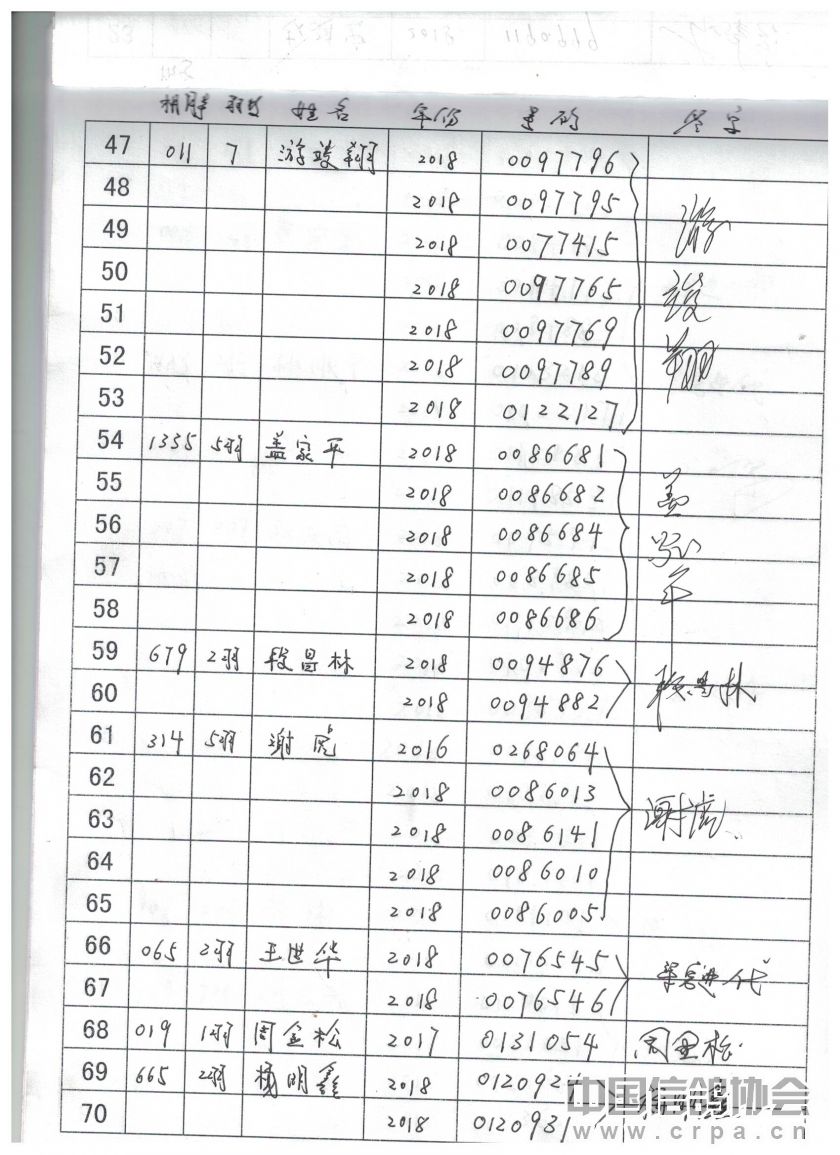 棚号 羽数 姓名 年份 号码 签字
47 011 7 游骏翔 2018 0097796
48 2018 0097795
49 2018 0077415
50 2018 0097765
51 2018 0097769
52 2018 0097789
53 2018 0122127
54 1335 5羽 盖家平 2018 0086681
55 2018 0086682
56 2018 0086684
57 2018 0086685
58 2018 0086686
59 679 2羽 段昌林 2018 0094876 段昌林
60 2018 0094882
61 314 5羽 谢虎 2016 0268064
62 2018 0086013
63 2018 0086141 谢虎
64 2018 0086010
65 2018 0086005
66 065 2羽 王世华 2018 0076545
67 2018 0076546
68 019 1羽 周金松 2017 0131054 周金松
69 665 2羽 杨明鑫 2018
70 2018 0120931
中国信鸽协会
www.crpa.cn